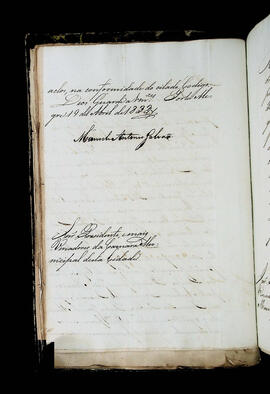 actos, na conformidade do citado Codigo.
Deos Guarde a Vm.ces Porto Ale-
gre, 19 de Abril de 1833.
Manoel Antonio Galvão
Snr.s Presidente, e mais
Vereadores da Camara Mu-
nicipal desta Cidade